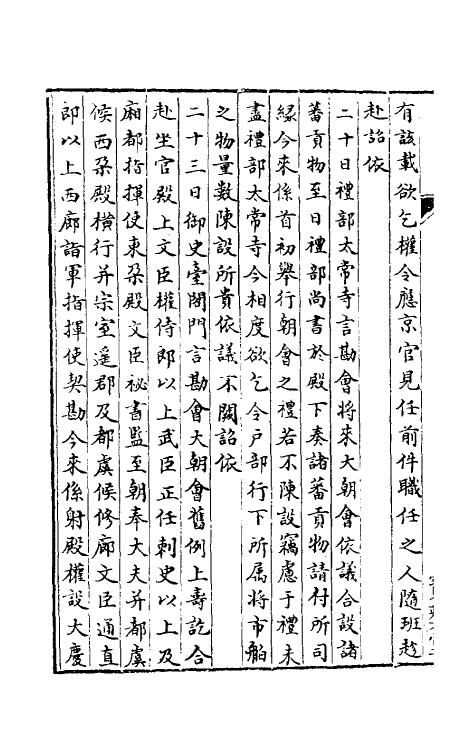 有該載欲乞權令應京官見任前件職任之人隨班趁
赴詔依
二十日禮部太常寺言勘會將來大朝會依議合設諸
蕃貢物至日禮部尚書於殿下奏諸蕃貢物請付所司
緣今來係首初舉行朝會之禮若不陳設竊慮于禮未
盡禮部太常寺今相度欲乞令戶部行下所属將市舶
之物量數陳設所貴依議不闕詔依
二十三日御史臺閤門言勘會大朝會舊例上壽訖合
赴坐官殿上文臣權侍郎以上武臣正任刺史以上及
廂都指揮使東朶殿文臣祕書監至朝奉大夫并都虞
候西朶殿橫行并宗室遥郡及都虞候修廊文臣通直
郎以上西廊諸軍指揮使契勘今來係射殿權設大慶